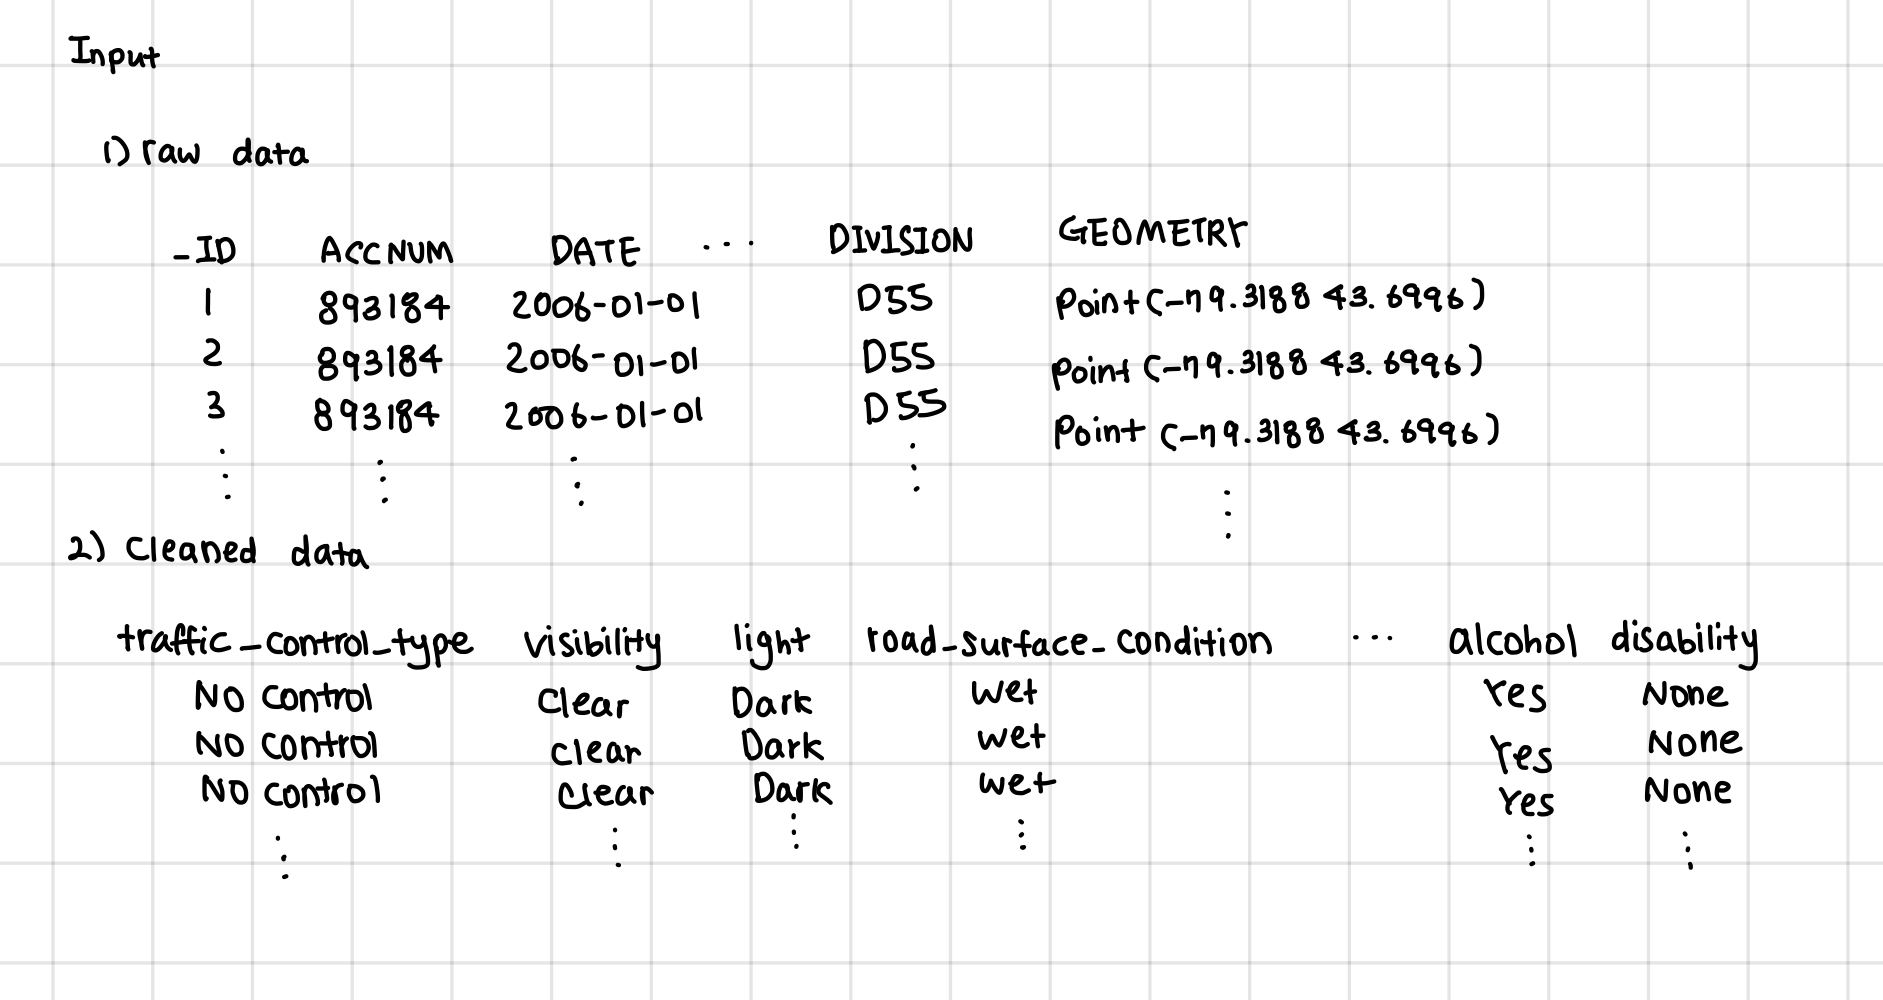 Input
1) raw data
_ID ACCNUM DATE ... DIVISION GEOMETRY
1 893184 2006-01-01 D55 Point (-79.3188 43.6996)
2 893184 2006-01-01 D55 Point (-79.3188 43.6996)
3 893184 2006-01-01 D55 Point (-79.3188 43.6996)
2) Cleaned data
traffic_control_type visibility light road_surface_condition ... alcohol disability
No control Clear Dark Wet Yes None
No control clear Dark wet Yes None
No control clear Dark wet Yes None